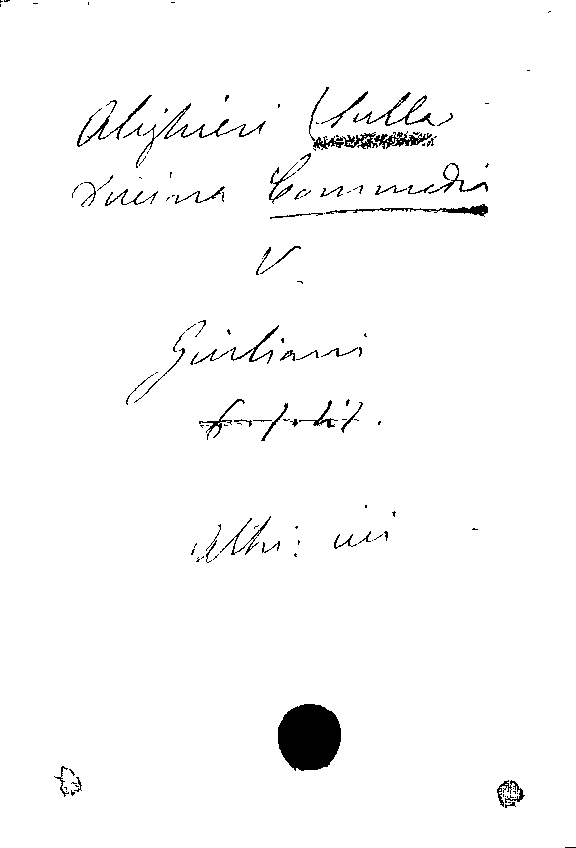 Alighieri (Sulla
Divina Commedia
V.
Giuliani
Altri: ivi